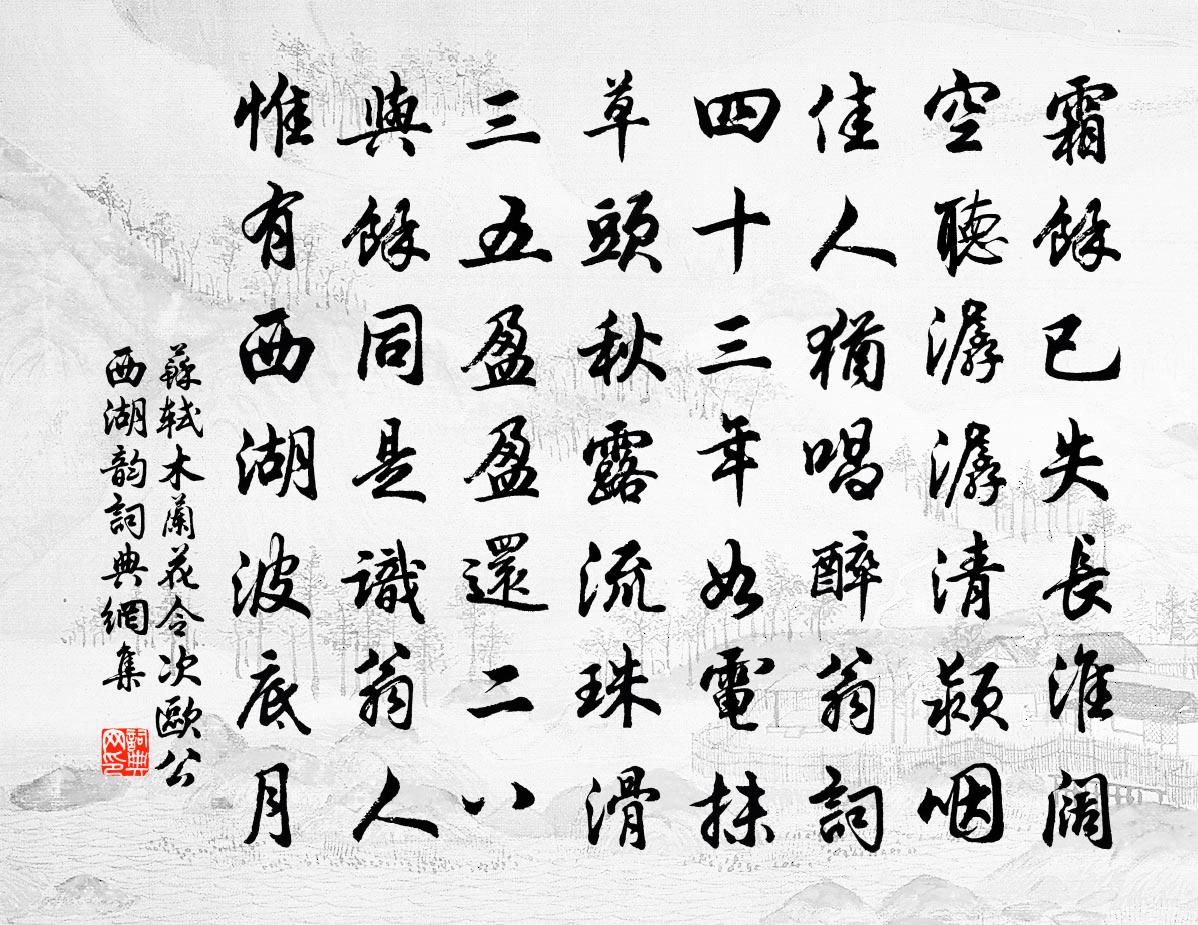 霜餘已失長淮闊
空聽潺潺清潁咽
佳人猶唱醉翁詞
四十三年如電抹
草頭秋露流珠滑
三五盈盈還二八
與餘同是識翁人
惟有西湖波底月
蘇轼木蘭花令次歐公
西湖韵詞典網集
詞典
网印